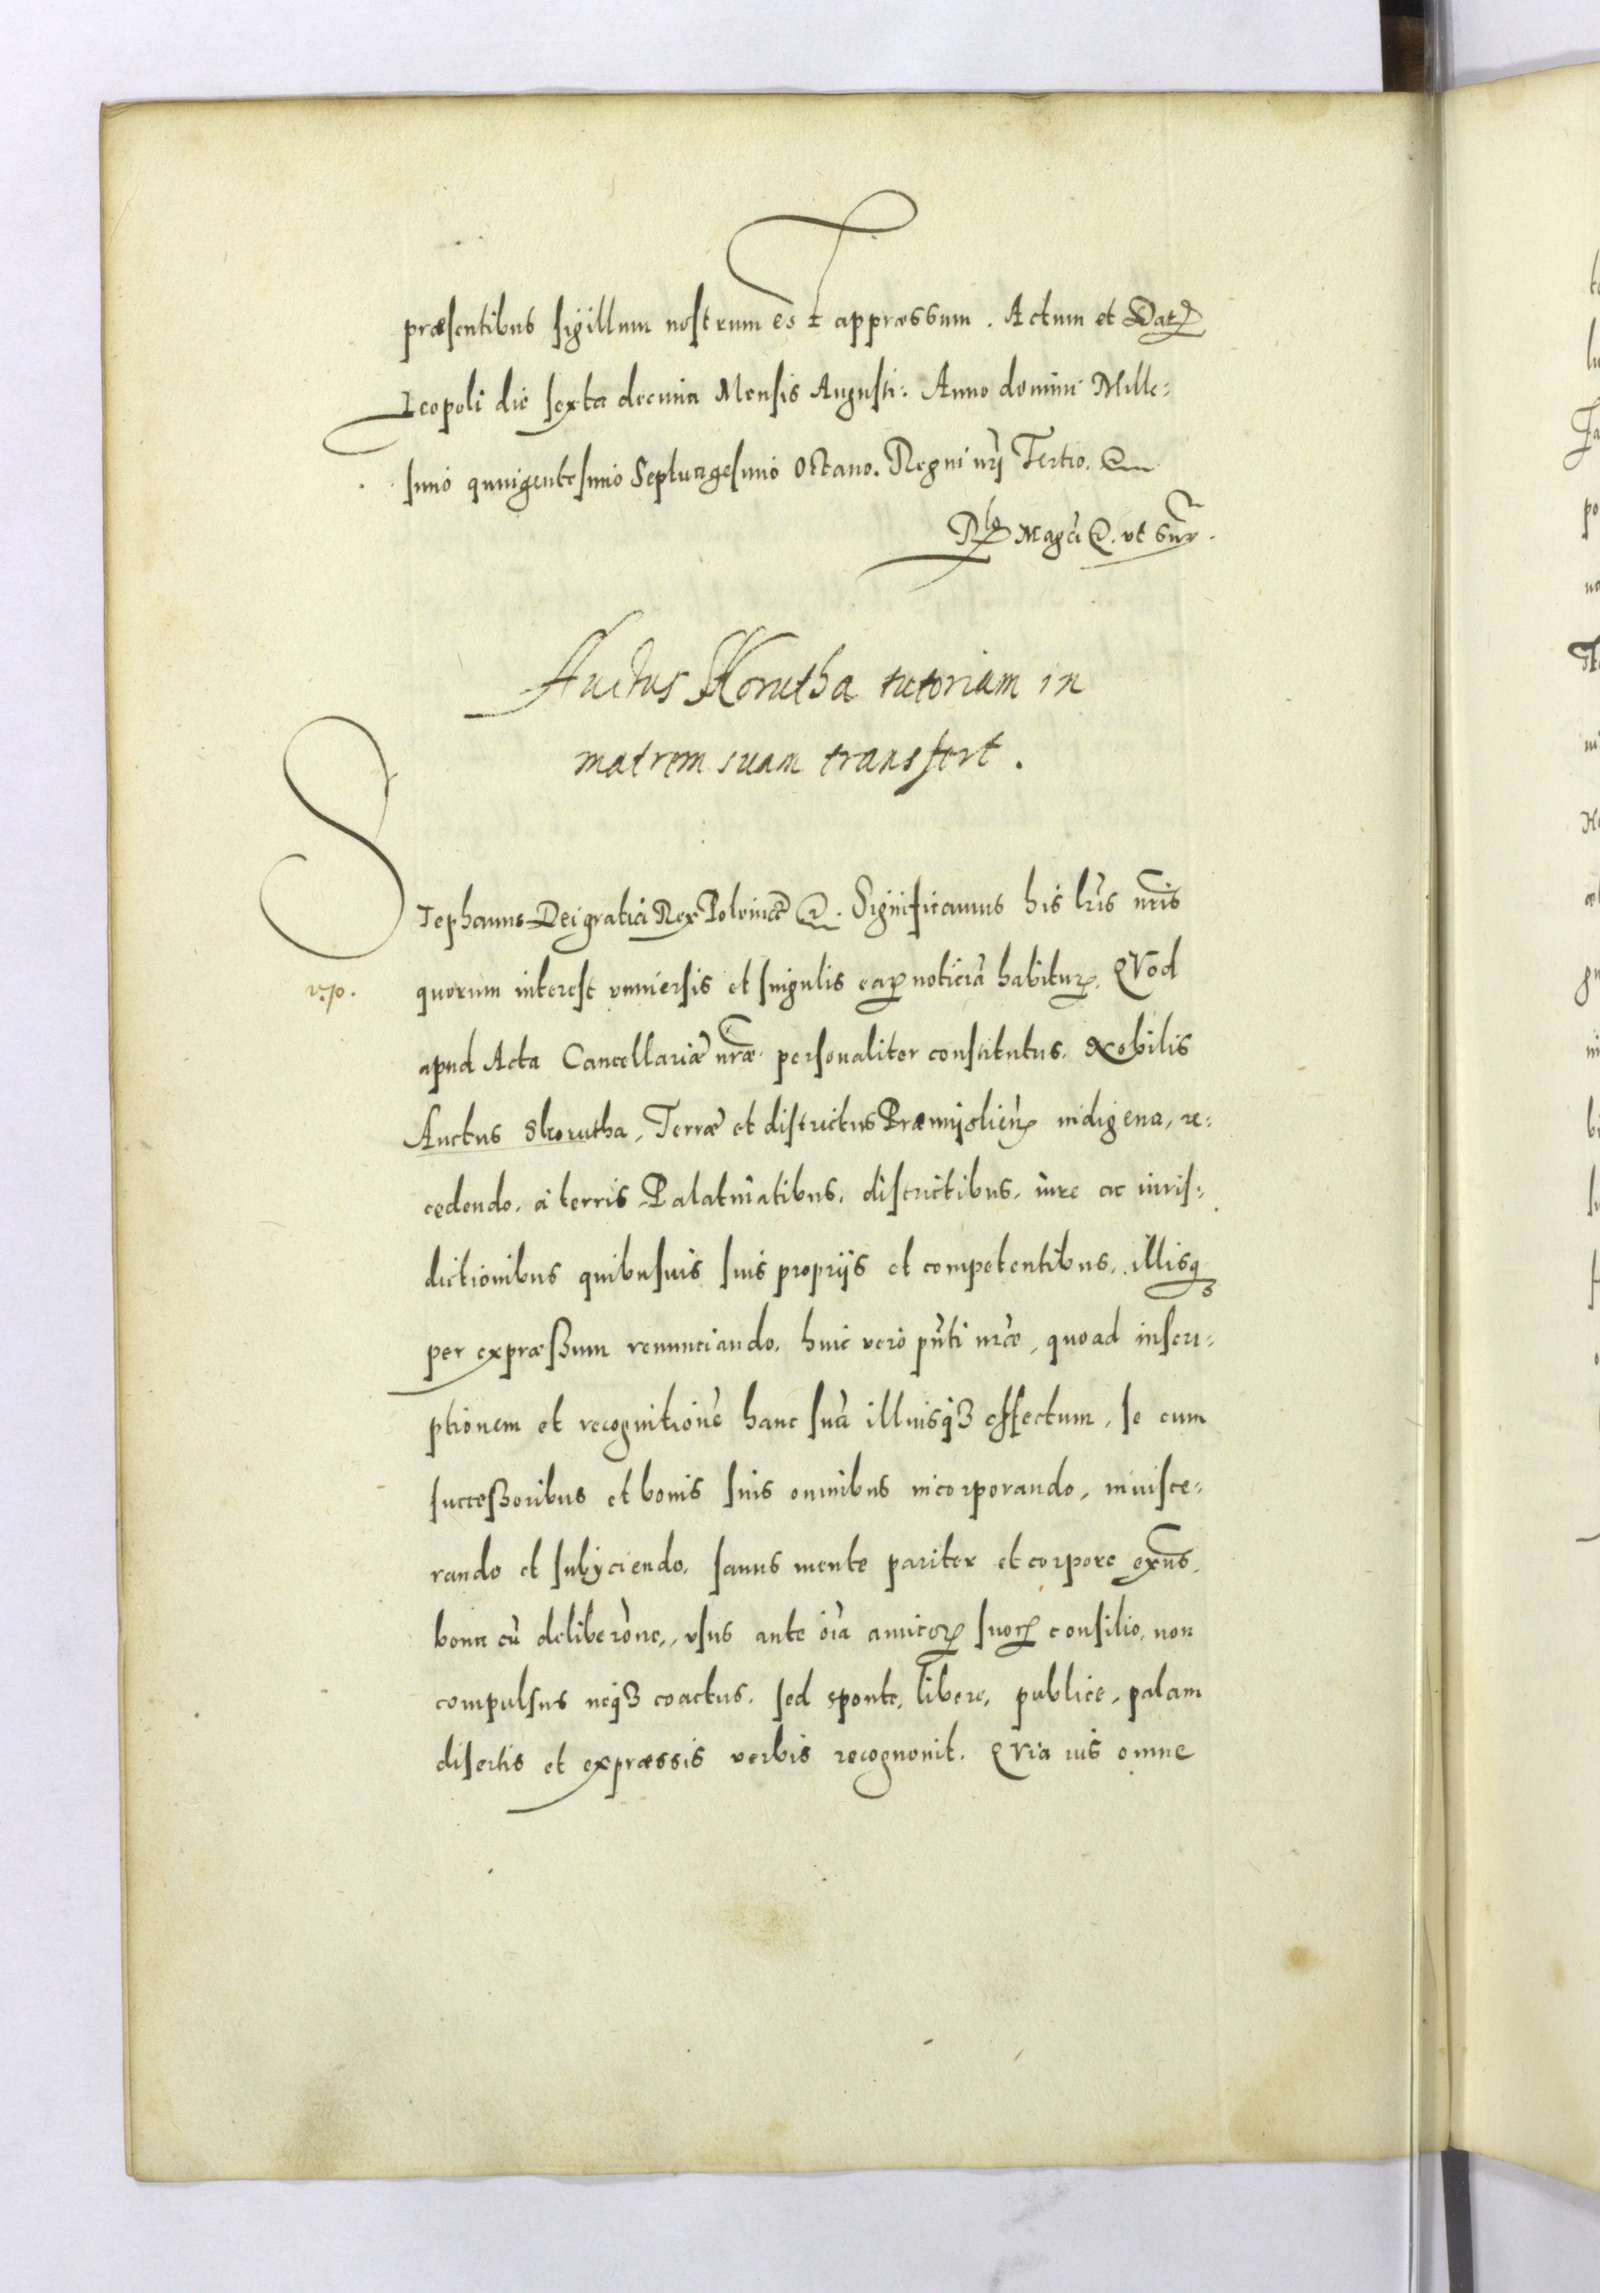 præsentibus sigillum nostrum est appræssum. Actum et Dat
Leopoli die sexta decima Mensis Augusti. Anno domini Mille=
simo quingentesimo Septuagesimo Octavo. Regni nri Tertio. &
Rlo Magci &. ut supr.
Auctus Skorutha tutoriam in
matrem suam transfert.
Stephanus Dei gratia Rex Poloniæ &. Significamus his lris nris
v.p.
quorum interest universis et singulis earum noticiã habitur. QVod
apud Acta Cancellariæ nræ personaliter constitutus. Nobilis
Auctus Skorutha, Terræ et districtus Præmislien indigena, re=
cedendo. à terris Palatinatibus. districtibus. iure ac iuris=
dictionibus quibusuis suis proprijs et competentibus. illisq3
per expræßum renunciando. huic vero pnti nræ, quoad inscri=
ptionem et recognitionẽ hanc suã illiusq3 effectum, se cum
successoribus et bonis suis omnibus incorporando, inuisce=
rando et subijciendo. sanus mente pariter et corpore exns.
bona cũ deliberone, usus ante oĩa amicor suor consilio, non
compulsus neq3 coactus. sed sponte, libere, publice, palam
disertis et expræssis verbis recognouit. QVia ius omne